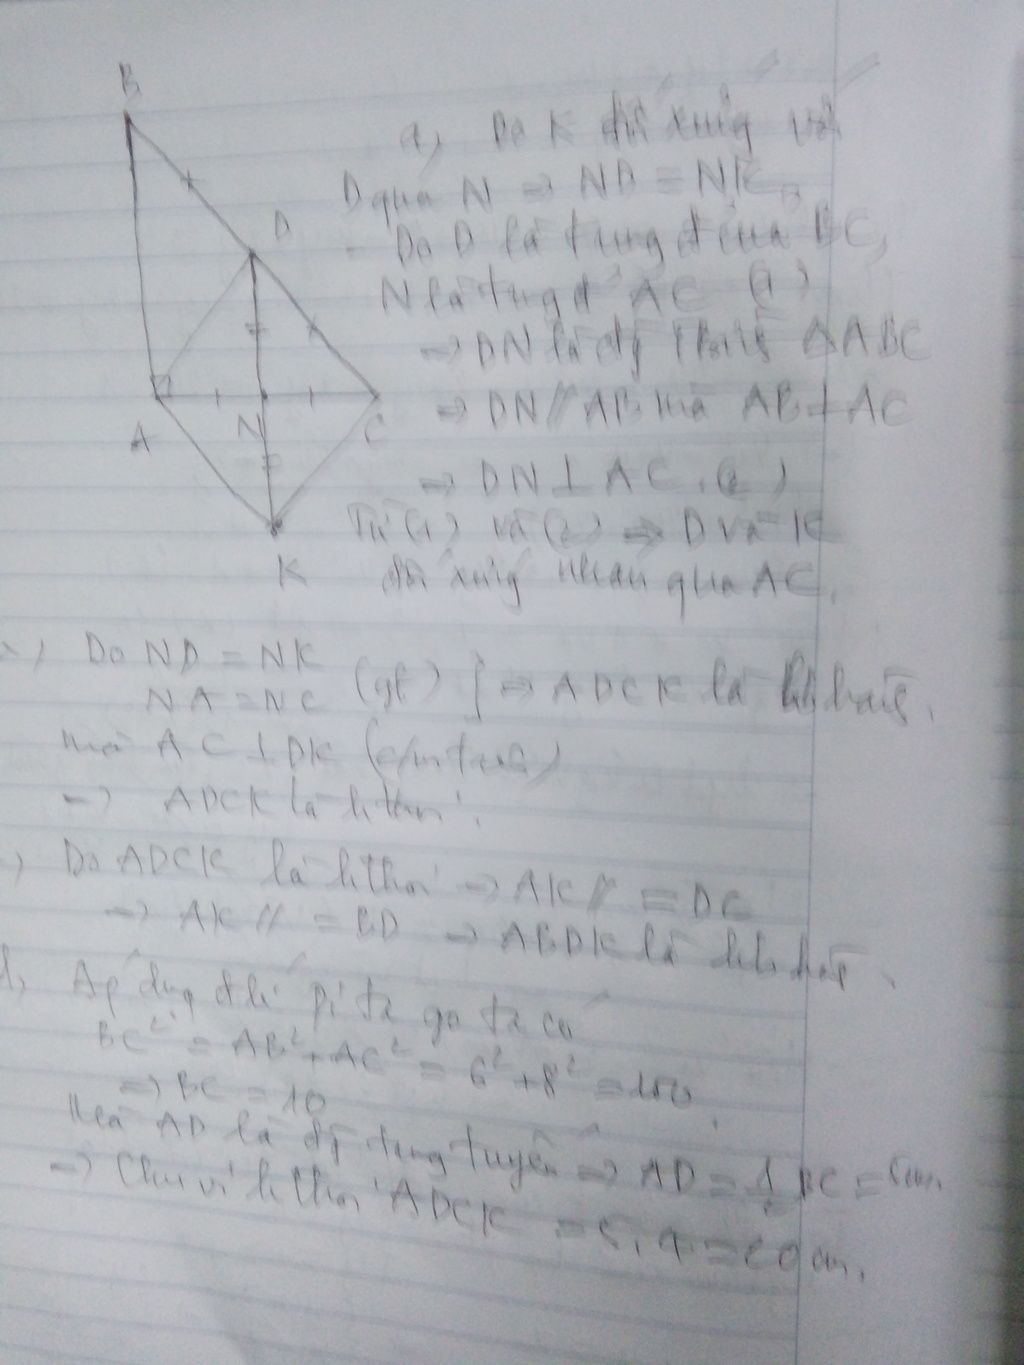 B
D
A
N
C
K
a, Do K đối xứng với
D qua N ⇒ ND = NK
- Do D là tung đ' của BC,
N là tung đ' AC (1)
⇒ DN là đg Tbình ΔABC
⇒ DN // AB mà AB ⊥ AC
⇒ DN ⊥ AC. (2)
Từ (1) và (2) ⇒ D và K
đối xứng nhau qua AC.
Do ND = NK
NA = NC (gt) ] ⇒ ADCK là hbh hàng.
mà AC ⊥ DK (c/m trên)
⇒ ADCK là h thoi.
Do ADCK là h thoi ⇒ AK // = DC
⇒ AK // = BD ⇒ ABDK là hbh
d, Áp dụng đ lí pi ta go ta có
BC² = AB² + AC² = 6² + 8² = 100.
⇒ BC = 10
Mà AD là đg tung tuyến ⇒ AD = 1/2 BC = 5cm.
⇒ Chu vi h thoi ADCK = 5.4 = 20 cm.